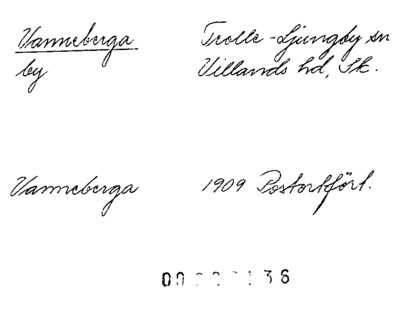 Vanneberga Trolle-Ljungby sn
by Villands hd, Sk.
Vanneberga 1909 Postortfört.